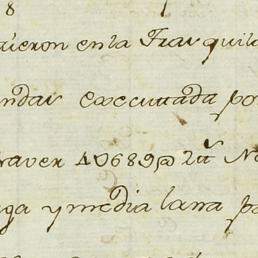 8
ieron en la Tranquil
ndar executada po
raver 40689@ 2tt N
ga y media lana p